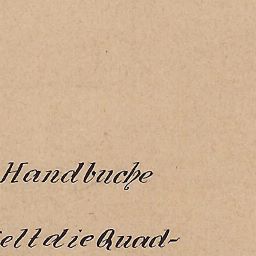 Handbuche
elt die Quad-